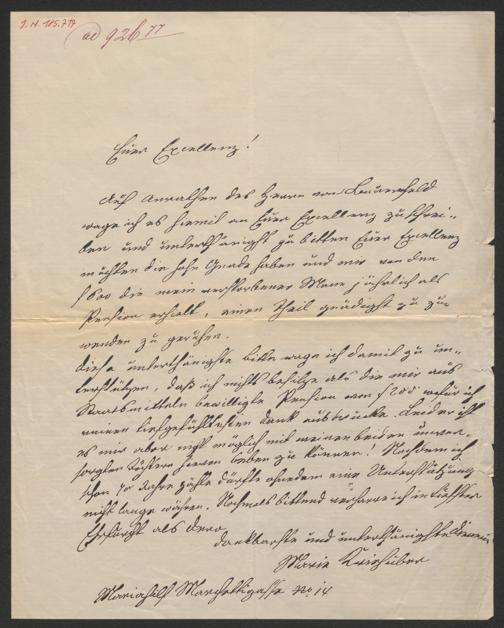 I. N. 185.717
ad 926 77
Euer Excellenz!
Auf Anrathen des Herrn von Bauernfeld
wage ich es hiemit an Euer Excellenz zu schrei-
ben und unterthänigst zu bitten Euer Excellenz
möchten die hohe Gnade haben und mir von den
f 600 die mein verstorbener Mann jährlich als
Pension erhielt, einen Theil gnädigst zu zu-
wenden zu geruhen.
Diese unterthänigste Bitte wage ich damit zu un-
terstützen, daß ich nichts besitze als die mir aus
Staatsmitteln bewilligte Pension von f 200 wofür ich
meinen tiefgefühltesten Dank ausdrücke. Leider ist
es mir aber nicht möglich mit meinen beiden unver-
sorgten Töchtern hievon leben zu können! Nachdem ich
schon 70 Jahre zähle dürfte ohnedem eine Unterstützung
nicht lange währen. Nochmals bittend verharre ich in tiefster
Ehrfurcht als dero
dankbarste und unterthänigste Dienerin
Marie Kriehuber
Mariahilf Marchettigasse No 14